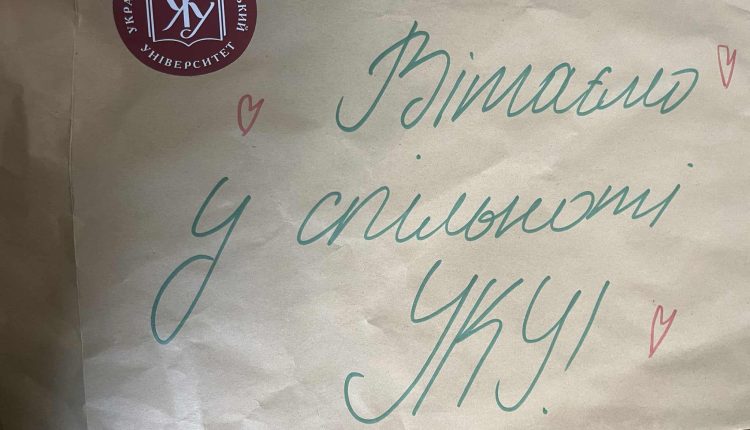 УКРА
СЬКИЙ
УНІВЕРСИТЕТ
Вітаємо
у спільноті
УКУ!